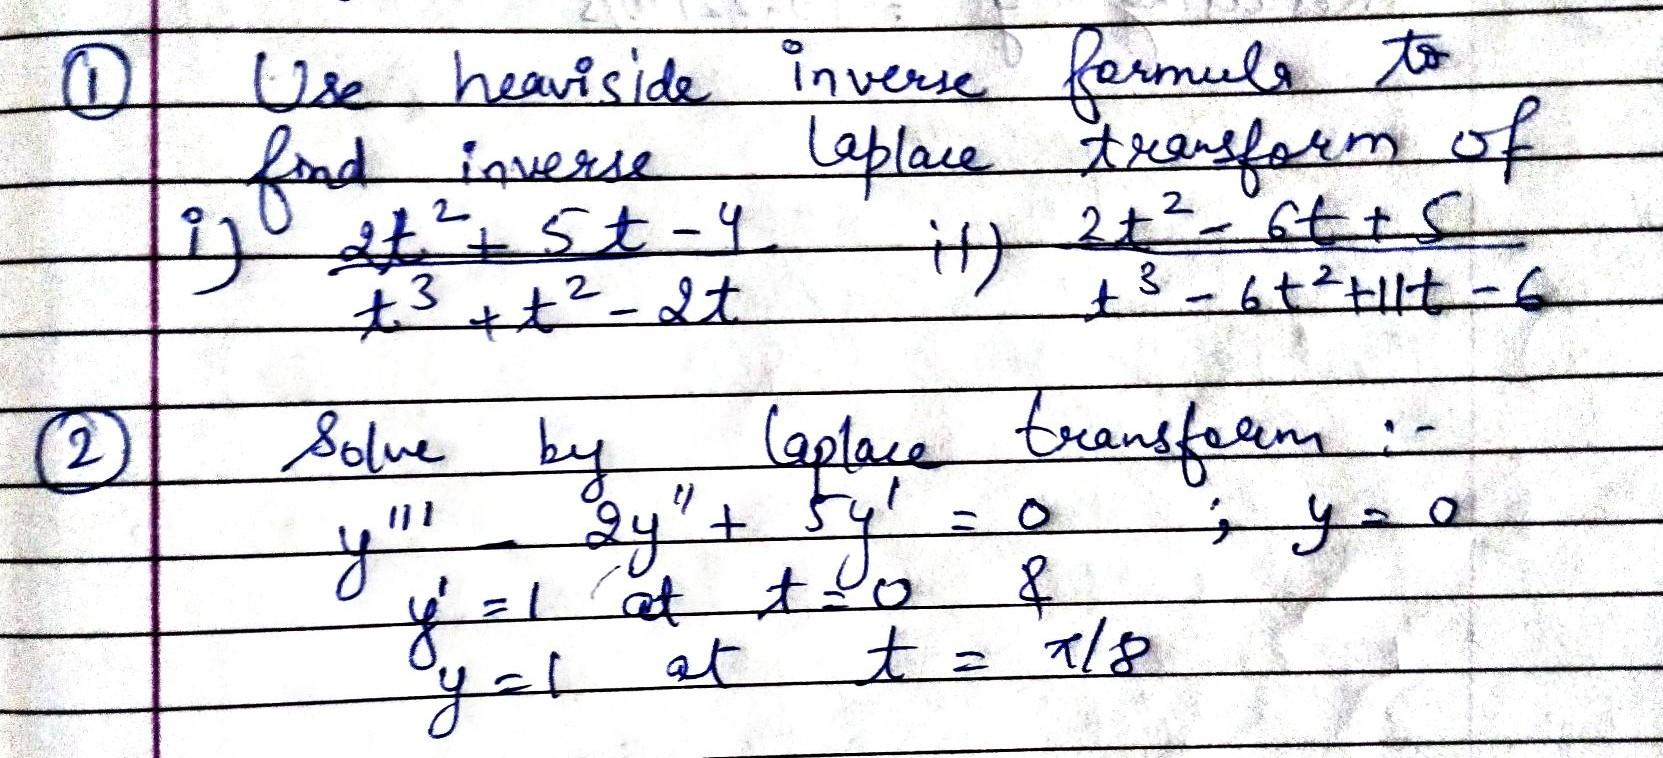 ① Use heaviside inverse formula to
find inverse laplace transform of
i) 2t² + 5t - 4 / t³ + t² - 2t ii) 2t² - 6t + 5 / t³ - 6t² + 11t - 6
② Solve by laplace transform :-
y''' - 2y'' + 5y' = 0 ; y = 0
y' = 1 at t = 0 &
y = 1 at t = π/8